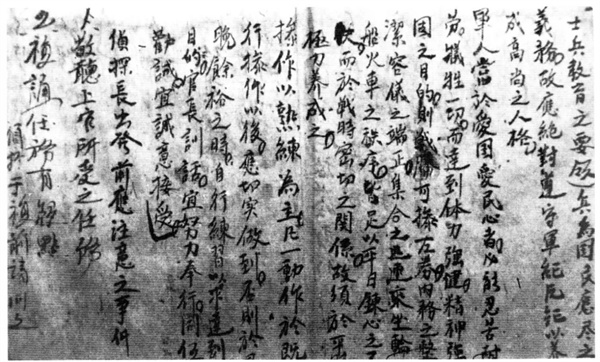 士兵教育之要領兵為国家尽之
義務故應絕對遵守軍紀風紀以養
成高尚之人格
軍人當於愛国愛民心者必能忍苦耐
勞犧牲一切而達到体力強健精神強
固之目的則戰勝可操左券内務之整
潔容儀之端正集合之迅速乘坐輪
船火車之皆足以平日鍊心之工
而於戰時密切之關係故須於平
極力養成之
操作以熟練為主凡一動作於既
行操作以後應切实做到否則於
晚餘裕之時自行練習以求達到
目的官長訓話宜努力奉行同伍
勸誡宜誠意接受
偵探長出發前應注意之事件
1敬聽上官所受之任務
2複誦任務有疑點